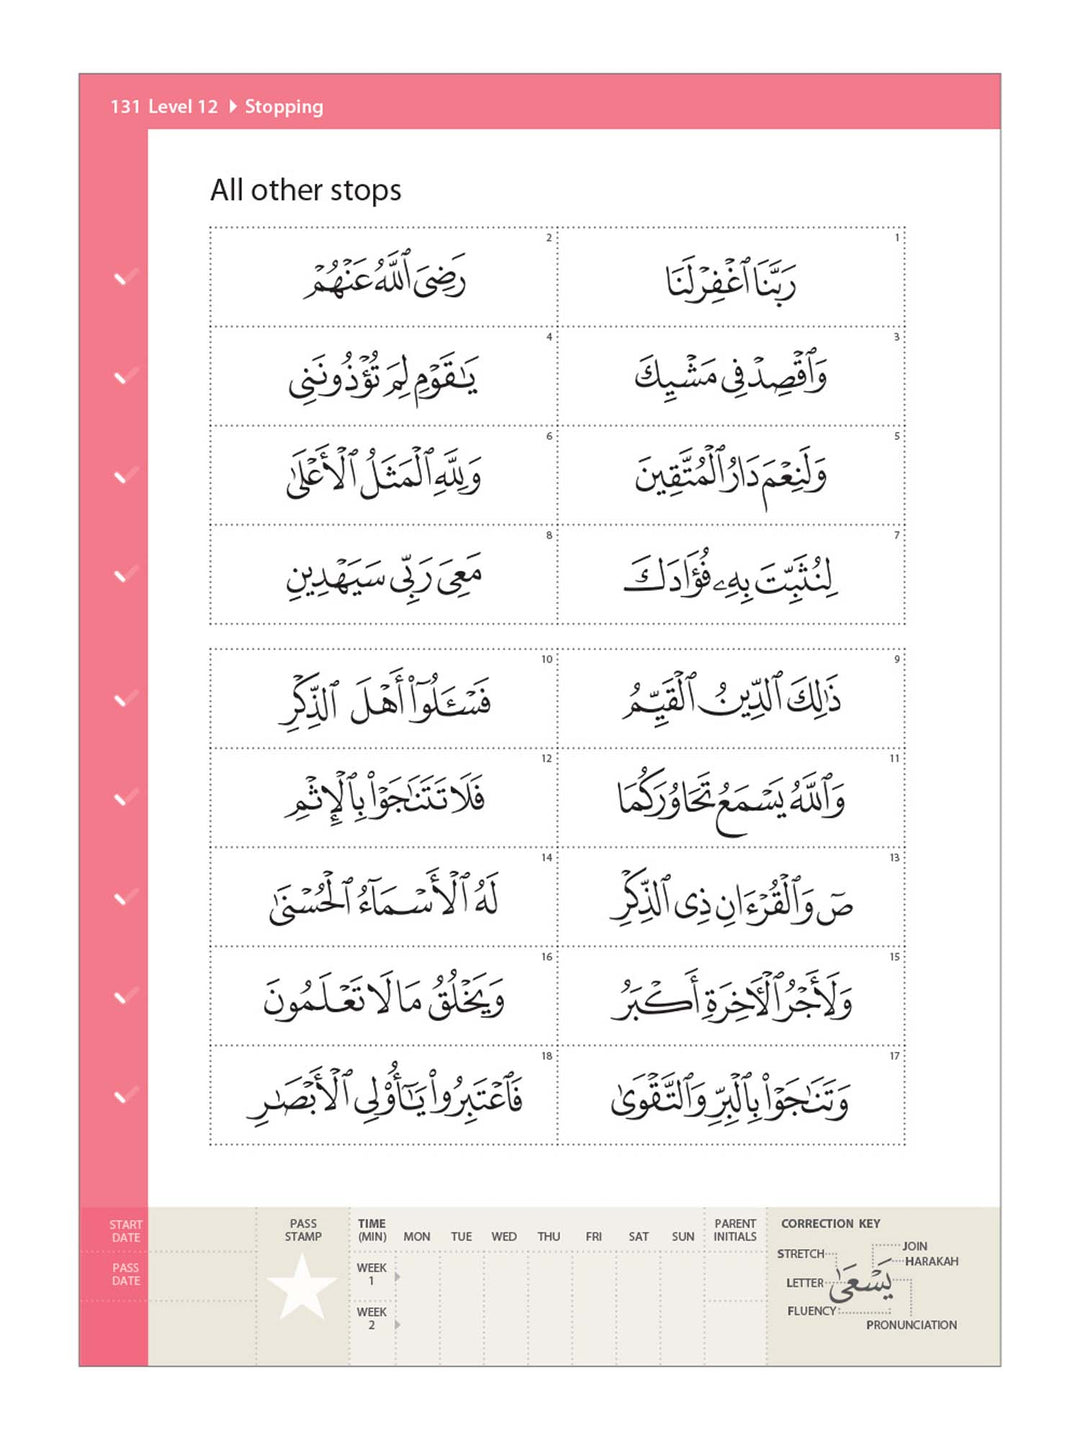 131 Level 12 Stopping
All other stops
1
رَبَّنَا ٱغْفِرْ لَنَا
2
رَضِىَ ٱللَّهُ عَنْهُمْ
3
وَٱقْصِدْ فِى مَشْيِكَ
4
يَـٰقَوْمِ لِمَ تُؤْذُونَنِى
5
وَلَنِعْمَ دَارُ ٱلْمُتَّقِينَ
6
وَلِلَّهِ ٱلْمَثَلُ ٱلْأَعْلَىٰ
7
لِنُثَبِّتَ بِهِۦ فُؤَادَكَ
8
مَعِىَ رَبِّى سَيَهْدِينِ
9
ذَٰلِكَ ٱلدِّينُ ٱلْقَيِّمُ
10
فَسْـَٔلُوٓا۟ أَهْلَ ٱلذِّكْرِ
11
وَٱللَّهُ يَسْمَعُ تَحَاوُرَكُمَا
12
فَلَا تَتَنَـٰجَوْا۟ بِٱلْإِثْمِ
13
صٓ وَٱلْقُرْءَانِ ذِى ٱلذِّكْرِ
14
لَهُ ٱلْأَسْمَآءُ ٱلْحُسْنَىٰ
15
وَلَأَجْرُ ٱلْـَٔاخِرَةِ أَكْبَرُ
16
وَيَخْلُقُ مَا لَا تَعْلَمُونَ
17
وَتَنَـٰجَوْا۟ بِٱلْبِرِّ وَٱلتَّقْوَىٰ
18
فَٱعْتَبِرُوا۟ يَـٰٓأُو۟لِى ٱلْأَبْصَـٰرِ
START DATE
PASS DATE
PASS STAMP
TIME (MIN) MON TUE WED THU FRI SAT SUN
WEEK 1
WEEK 2
PARENT INITIALS
CORRECTION KEY
STRETCH
JOIN
HARAKAH
LETTER
يَسْعَىٰ
FLUENCY
PRONUNCIATION